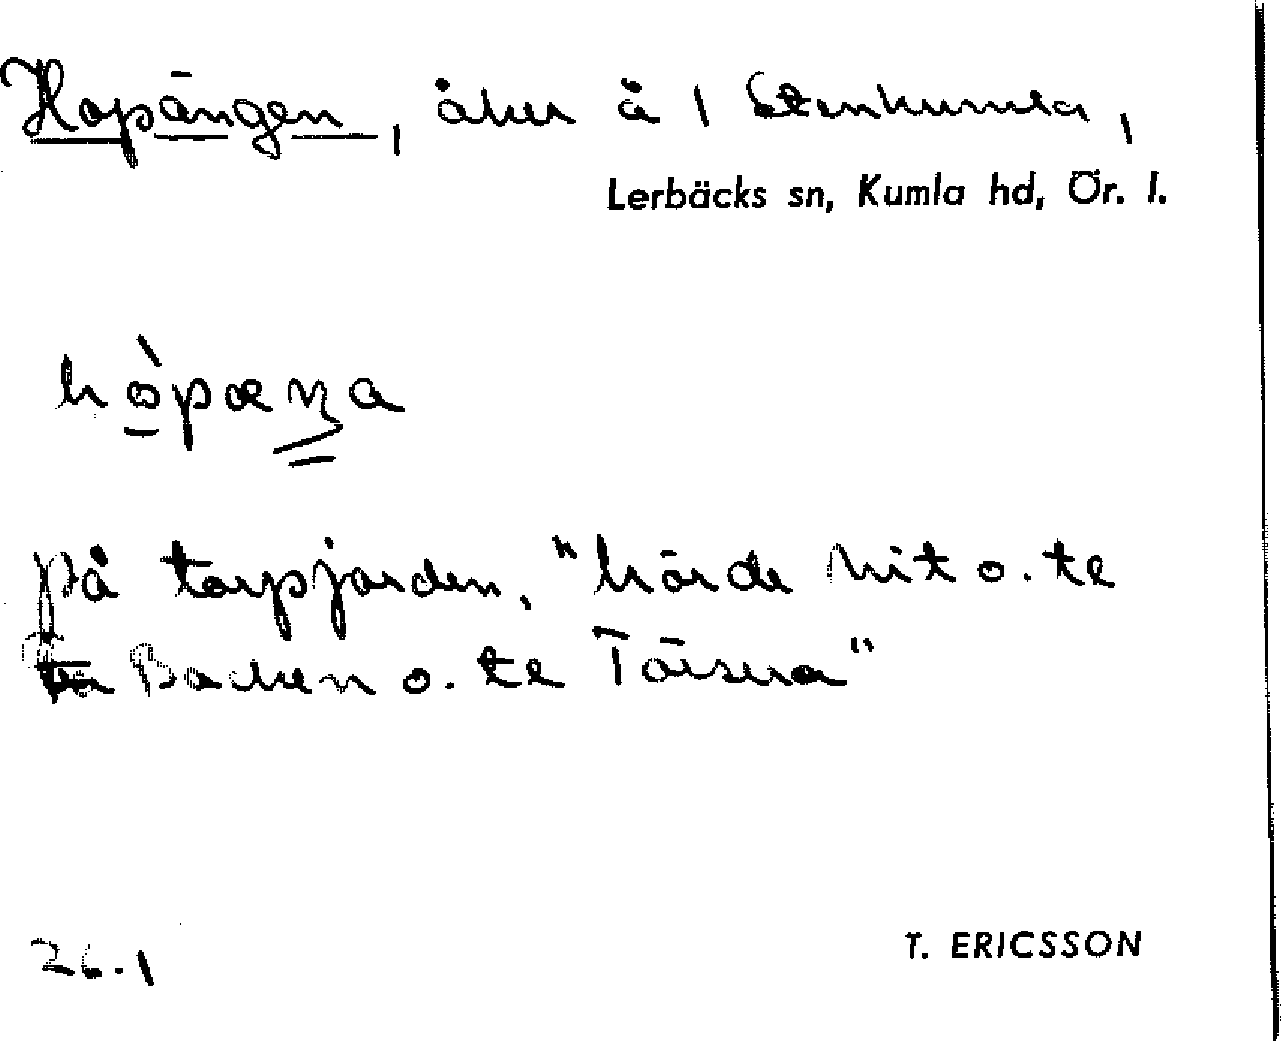 Hopängen, åker å 1 Stenkumla,
Lerbäcks sn, Kumla hd, Ör. l.
hòpæŋa
på torpjorden, "hörde hit o. te
Backen o. te Töisera"
26.1
T. ERICSSON